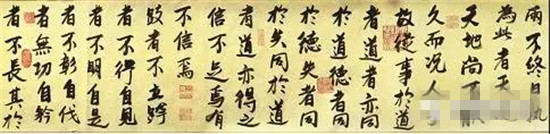 雨不終日孰
為此者天
天地尚不
久而況人
故從事於道
者道者亦同
於道德者同
於德失者同
於失同於道
者道亦得之
信不足焉有
不信焉
跂者不立跨
者不行自見
者不明自是
者不彰自伐
者無功自矜
者不長其於